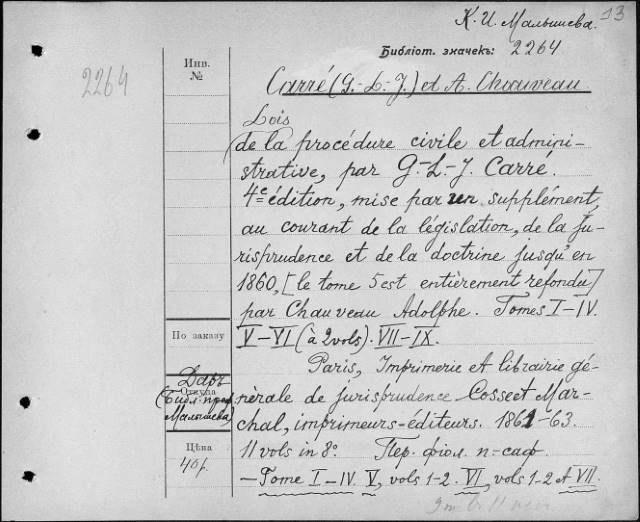 К. И. Малышева. 13
Библіот. значекъ: 2264
2264
Инв.
№
Carré (G.-L.-J.) et A. Chauveau
Lois
de la procédure civile et admini-
strative, par G.-L.-J. Carré.
4e édition, mise par un supplément,
au courant de la législation, de la ju-
risprudence et de la doctrine jusqu'en
1860, [le tome 5 est entièrement refondu]
par Chauveau Adolphe. Tomes I-IV.
V-VI (à 2 vols). VII-IX.
По заказу
Paris, Imprimerie et librairie gé-
Даръ
Откуда
(Библ. проф.
Малышева)
nérale de jurisprudence Cosse et Mar-
chal, imprimeurs-éditeurs. 1861-63.
Цѣна
40р.
11 vols in 8°. Пер. фіол. п-саф.
- Tome I-IV. V, vols 1-2. VI, vols 1-2 et VII.